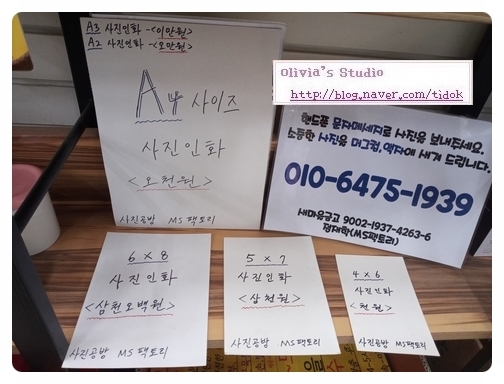 A3 사진인화 -<이만원>
A2 사진인화 -<오만원>
A4 사이즈
사진인화
<오천원>
사진공방 MS팩토리
Olivia's Studio
http://blog.naver.com/tidok
핸드폰 문자메세지로 사진을 보내주세요.
소중한 사진을 머그컵,액자에 새겨 드립니다.
010-6475-1939
새마을금고 9002-1937-4263-6
정재학(MS팩토리)
6 x 8
사진인화
<삼천오백원>
사진공방 MS팩토리
5 x 7
사진인화
<삼천원>
사진공방 MS팩토리
4 x 6
사진인화
<천원>
사진공방 MS팩토리